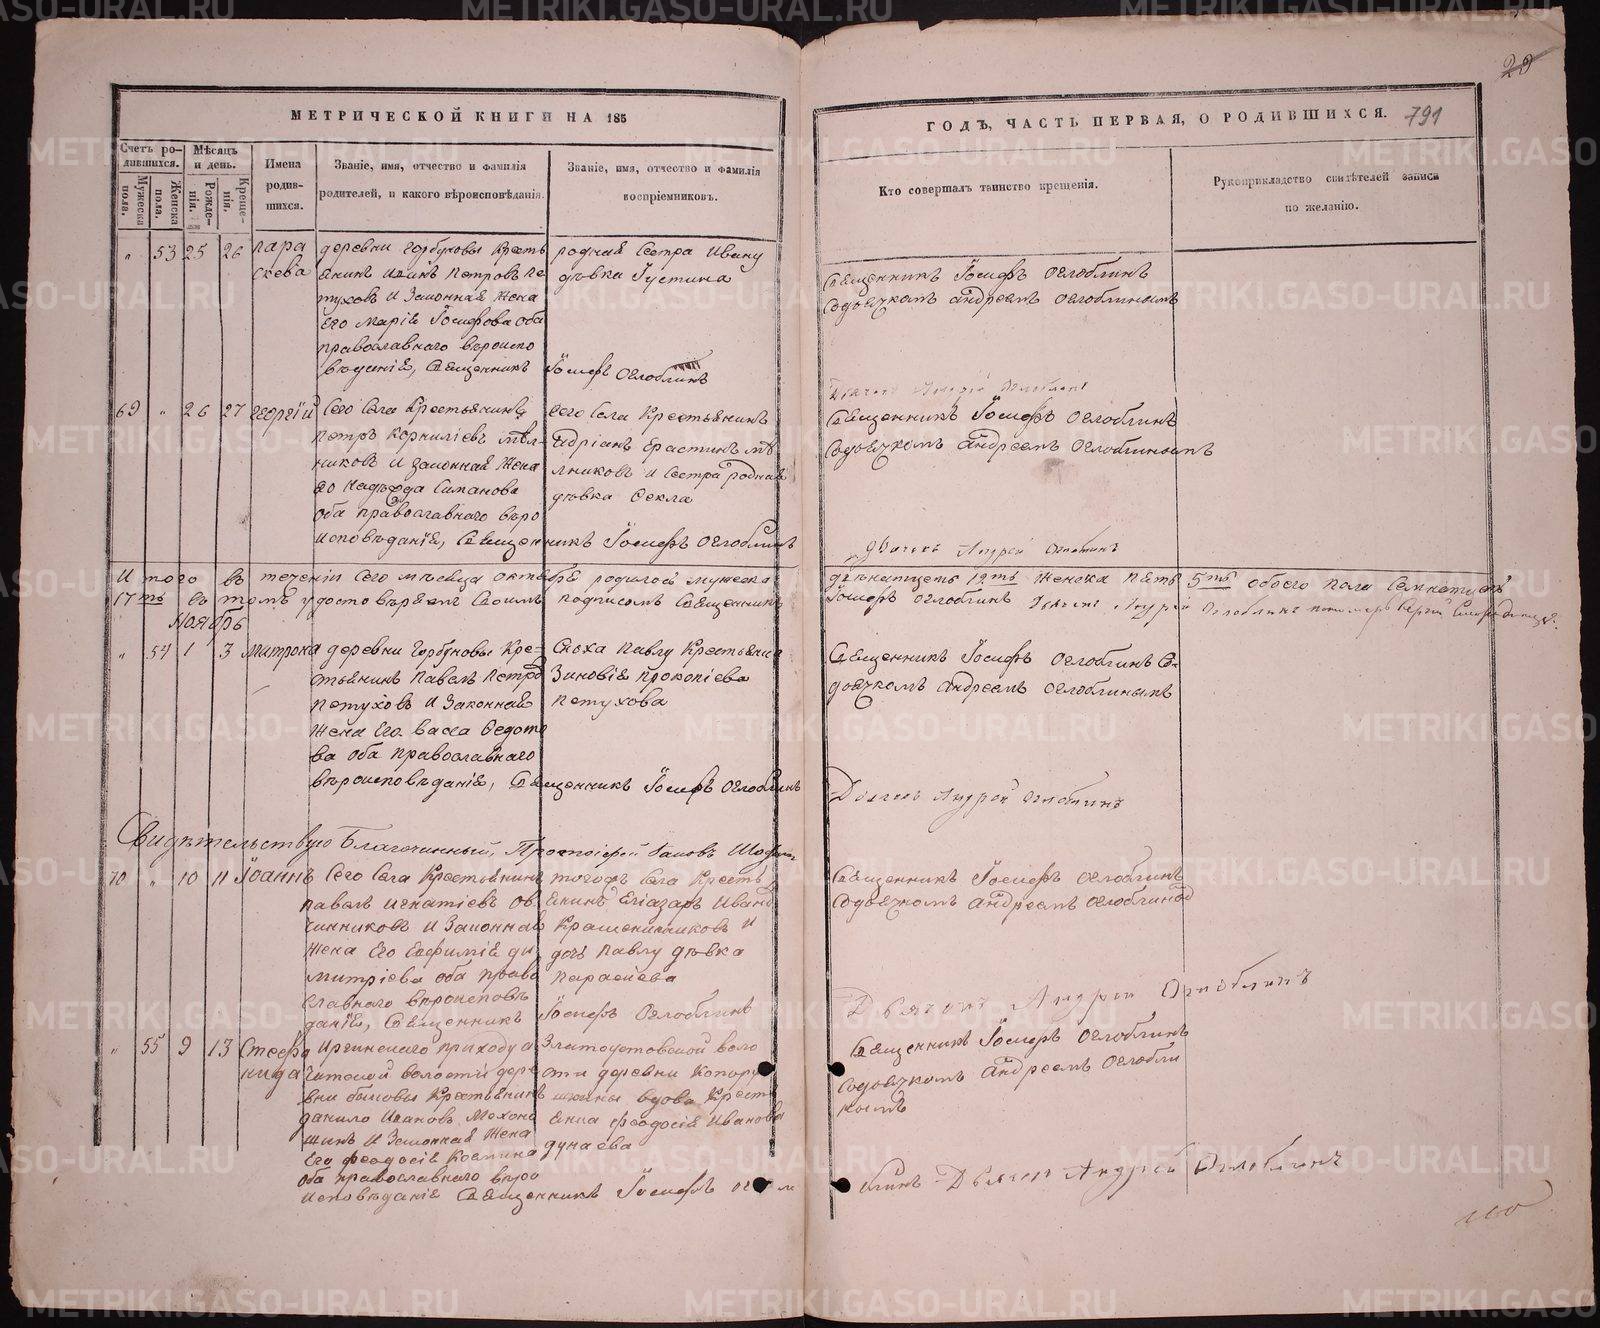 29
МЕТРИЧЕСКОЙ КНИГИ НА 185
ГОДЪ, ЧАСТЬ ПЕРВАЯ, О РОДИВШИХСЯ. 791
Счетъ ро-
дившихся.
Мужеска
пола.
Женска
пола.
Мѣсяцъ
и день.
Рожде-
нія.
Креще-
нія.
Имена
родив-
шихся.
Званіе, имя, отчество и фамилія
родителей, и какого вѣроисповѣданія.
Званіе, имя, отчество и фамилія
воспріемниковъ.
Кто совершалъ таинство крещенія.
Рукоприкладство свидѣтелей записи
по желанію.
" 53 25 26 пара
скева
деревни Горбуновы Кресть
янинъ Иванъ Петровъ Пе
туховъ и Законная Жена
Его Марія Іосифова оба
православнаго вѣроиспо
вѣданія, Священникъ Іосифъ Оглоблинъ
родная Сестра Ивану
дѣвка Густина
Священникъ Іосифъ Оглоблинъ
Содьячкомъ Андреемъ Оглоблинымъ
69 " 26 27 Георгій
Сего Села Крестьянинъ
Петръ Корниліевъ Мѣл-
никовъ и законная Жена
Его Надѣжда Симанова
оба православнаго вѣро
исповѣданія, Священникъ Іосифъ Оглоблинъ
Сего Села Крестьянинъ
Адріанъ Ерастинъ Мѣ
лниковъ и Сестра родная
дѣвка Фекла
Дьячокъ Андрей Оглоблинъ
Священникъ Іосифъ Оглоблинъ
Содьячкомъ Андреемъ Оглоблинымъ
Дьячекъ Андрей Оглоблинъ
Итого въ теченіи Сего мѣсяца октября родилось мужеска двѣнатцеть 12ть Женска пять 5ть обоего пола Семнатцеть
17ть въ томъ удостовѣряемъ Своимъ подписомъ Священникъ Іосифъ Оглоблинъ Дьячекъ Андрей Оглоблинъ
Ноябрь
" 54 1 3 Матрона
деревни Горбуновы Кре-
стьянинъ Павелъ Петровъ
Петуховъ и Законная
Жена Его Васса Федото
ва оба православнаго
вѣроисповѣданія, Священникъ Іосифъ Оглоблинъ
Сноха Павлу Крестьянка
Зиновія Прокопіева
Петухова
Священникъ Іосифъ Оглоблинъ Со-
дьячкомъ Андреемъ Оглоблинымъ
Дьячекъ Андрей Оглоблинъ
Свидѣтельствую Благочинный, Протоіерей
70 " 10 11 Іоаннъ
Сего Села Крестьянинъ
Павелъ Игнатіевъ Ов
чинниковъ и Законная
Жена Его Евфимія Ди
митріева оба право
славнаго вѣроисповѣ
данія, Священникъ Іосифъ Оглоблинъ
тогожъ Села Кресть
янинъ Еліазаръ Иванов
Крашенинниковъ и
дочь Павлу дѣвка
Параскева
Священникъ Іосифъ Оглоблинъ
Содьячкомъ Андреемъ Оглоблиным
Дьячокъ Андрей Оглоблинъ
" 55 9 13 Стефа
нида
Иргинскаго приходу а
читской волости дере
вни быковы Крестьянинъ
данило Ивановъ Механо
шинъ и Законная Жена
Его Феодосія Козмина
оба православнаго вѣро
исповѣданія Священникъ Іосифъ Огло
Златоустовской воло
сти деревни Копору
шкины вдова Кресть
янка Феодосія Иванова
дунаева
Священникъ Іосифъ Оглоблинъ
Содьячкомъ Андреемъ Оглобли
нымъ
блинъ Дьячокъ Андрей Оглоблинъ
METRIKI.GASO-URAL.RU